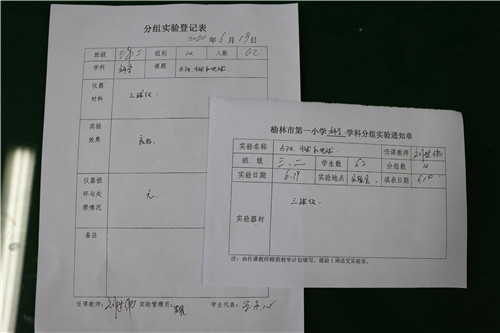 分组实验登记表
2020年6月19日
班级 三.二 组别 12 人数 62
学科 科学 课题 太阳、月球和地球
仪器材料 三球仪
实验效果 良好
仪器损坏与处理情况 无
备注
任课教师: 实验管理员: 学生代表:
榆林市第一小学科学学科分组实验通知单
实验名称 太阳、月球和地球 任课教师
班级 三.二 学生数 62 分组数 12
实验日期 6.19 实验地点 实验室 填表日期
实验器材 三球仪
注:由任课教师根据教学计划填写,提前1周送交实验室。